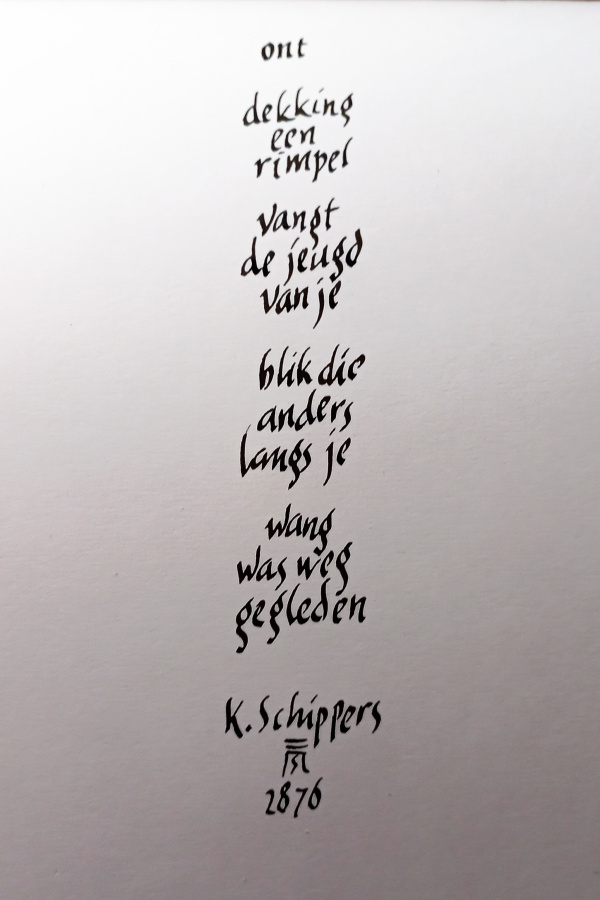 ont
dekking
een
rimpel
vangt
de jeugd
van je
blik die
anders
langs je
wang
was weg
gegleden
K. Schippers
2876